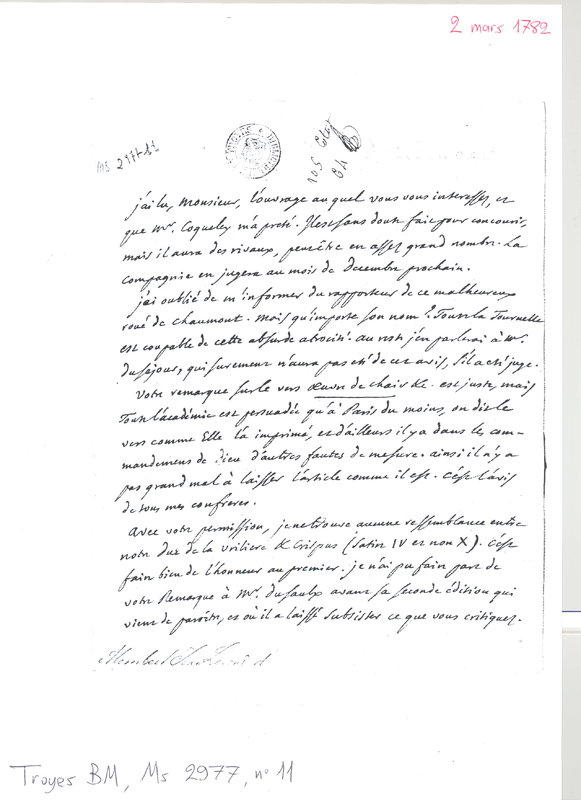 2 mars 1782
MS 2977-11
j'ai lu, Monsieur, l'ouvrage auquel vous vous interessez, et
que Mr. Coqueley m'a preté. Il est sans doute fait pour concourir,
mais il aura des rivaux, peutêtre en assez grand nombre. La
compagnie en jugera au mois de Decembre prochain.
j'ai oublié de m'informer du rapporteur de ce malheureux
roué de chaumont. mais qu'importe son nom? Toute la Tournelle
est coupable de cette absurde atrocité. au reste j'en parlerai à Mr.
Dusejour, qui surement n'aura pas eté de cet avis, s'il a eté juge.
Votre remarque sur le vers œuvre de chair &c. est juste, mais
Toute l'académie est persuadée qu'à Paris du moins, on dit le
vers comme Elle l'a imprimé, et d'ailleurs il y a dans les com-
mandemens de Dieu d'autres fautes de mesure. ainsi il n'y a
pas grand mal à laisser l'article comme il est. C'est l'avis
de tous mes confreres.
Avec votre permission, je ne trouve aucune ressemblance entre
notre Duc de la Vriliere & Crispus (Satir IV et non X). C'est
faire bien de l'honneur au premier. je n'ai pu faire part de
votre Remarque à Mr. dusaulx avant sa seconde édition qui
vient de paroître, et où il a laissé subsister ce que vous critiquez.
Troyes BM, Ms 2977, n° 11